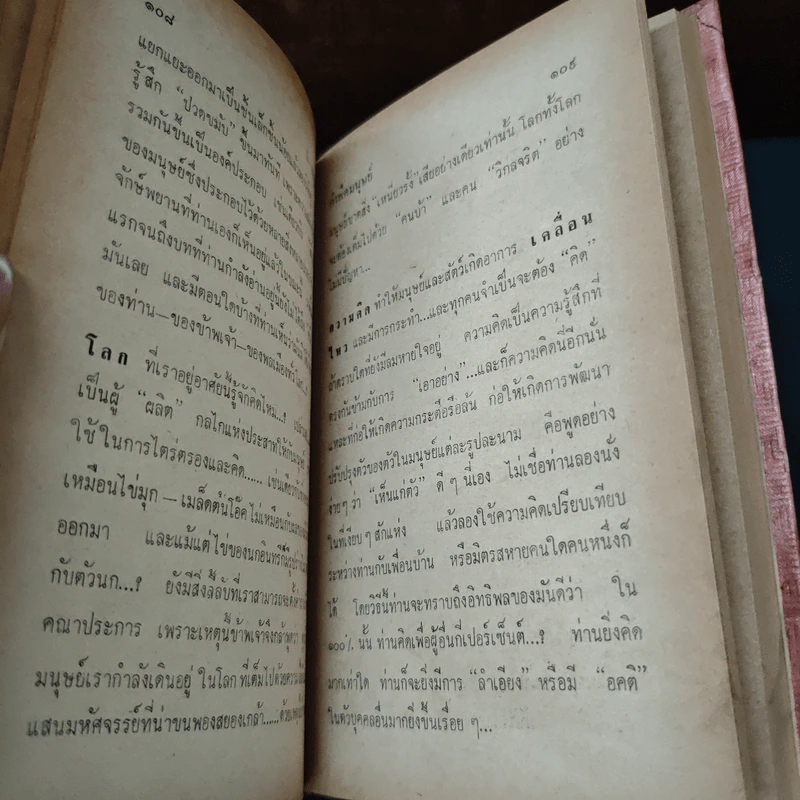 ๑๐๘
แยกแยะออกมาเป็นชิ้นเล็กชิ้นน้อย
รู้สึก “ปวดขมับ” ขึ้นมาทันที เพราะ
รวมกันขึ้นเป็นองค์ประกอบ เช่นเดียวกับ
ของมนุษย์ซึ่งประกอบไว้ด้วยหลายสิ่งหลาย
จักษ์พยานที่ท่านเองก็เห็นอยู่แล้วใน
แรกจนถึงบทที่ท่านกำลังอ่านอยู่นี้ยังไม่ได้
มันเลย และมีตอนใดบ้างที่ท่านเห็นว่ามัน
ของท่าน—ของข้าพเจ้า—ของพลเมืองทั่วโลก
โลก ที่เราอยู่อาศัยนี้รู้จักคิดไหม...?
เป็นผู้ “ผลิต” กลไกแห่งประสาทให้กับมนุษย์
ใช้ในการไตร่ตรองและคิด...... เช่นเดียวกับ
เหมือนไข่มุก — เมล็ดตุ่นโอ๊ค ไม่เหมือนกับ
ออกมา และแม้แต่ไข่ของนกอินทรีก็มีรูปร่างไม่
กับตัวนก...? ยังมีสิ่งลี้ลับที่เราสามารถจะ
คณาประการ เพราะเหตุนี้ข้าพเจ้าจึงกล้าพูดว่า
มนุษย์เรากำลังเดินอยู่ ในโลก ที่เต็มไปด้วยความ
แสนมหัศจรรย์ที่น่าขนพองสยองเกล้า......ด้วย
๑๐๙
มนุษย์
มนุษย์ขาดสิ่ง “เหนี่ยวรั้ง” เสียอย่างเดียวเท่านั้น โลกทั้งโลก
จะต้องเต็มไปด้วย “คนบ้า” และคน “วิกลจริต” อย่าง
ไม่มีปัญหา...
ความคิด ทำให้มนุษย์และสัตว์เกิดอาการ เคลื่อน
ไหว และมีการกระทำ...และทุกคนจำเป็นจะต้อง “คิด”
ถ้าตราบใดที่ยังมีลมหายใจอยู่ ความคิดเป็นความรู้สึกที่
ตรงกันข้ามกับการ “เอาอย่าง”...และก็ความคิดนี้อีกนั่น
แหละที่ก่อให้เกิดความกระตือรือล้น ก่อให้เกิดการพัฒนา
ปรับปรุงตัวของตัวในมนุษย์แต่ละรูปละนาม คือพูดอย่าง
ง่ายๆ ว่า “เห็นแก่ตัว” ดีๆ นี่เอง ไม่เชื่อท่านลองนั่ง
ในที่เงียบๆ สักแห่ง แล้วลองใช้ความคิดเปรียบเทียบ
ระหว่างท่านกับเพื่อนบ้าน หรือมิตรสหายคนใดคนหนึ่งก็
ได้ โดยวิธีนี้ท่านจะทราบถึงอิทธิพลของมันดีว่า ใน
๑๐๐% นั้น ท่านคิดเพื่อผู้อื่นกี่เปอร์เซ็นต์...? ท่านยิ่งคิด
มากเท่าใด ท่านก็จะยิ่งมีการ “ลำเอียง” หรือมี “อคติ”
ในตัวบุคคลอื่นมากยิ่งขึ้นเรื่อย ๆ...